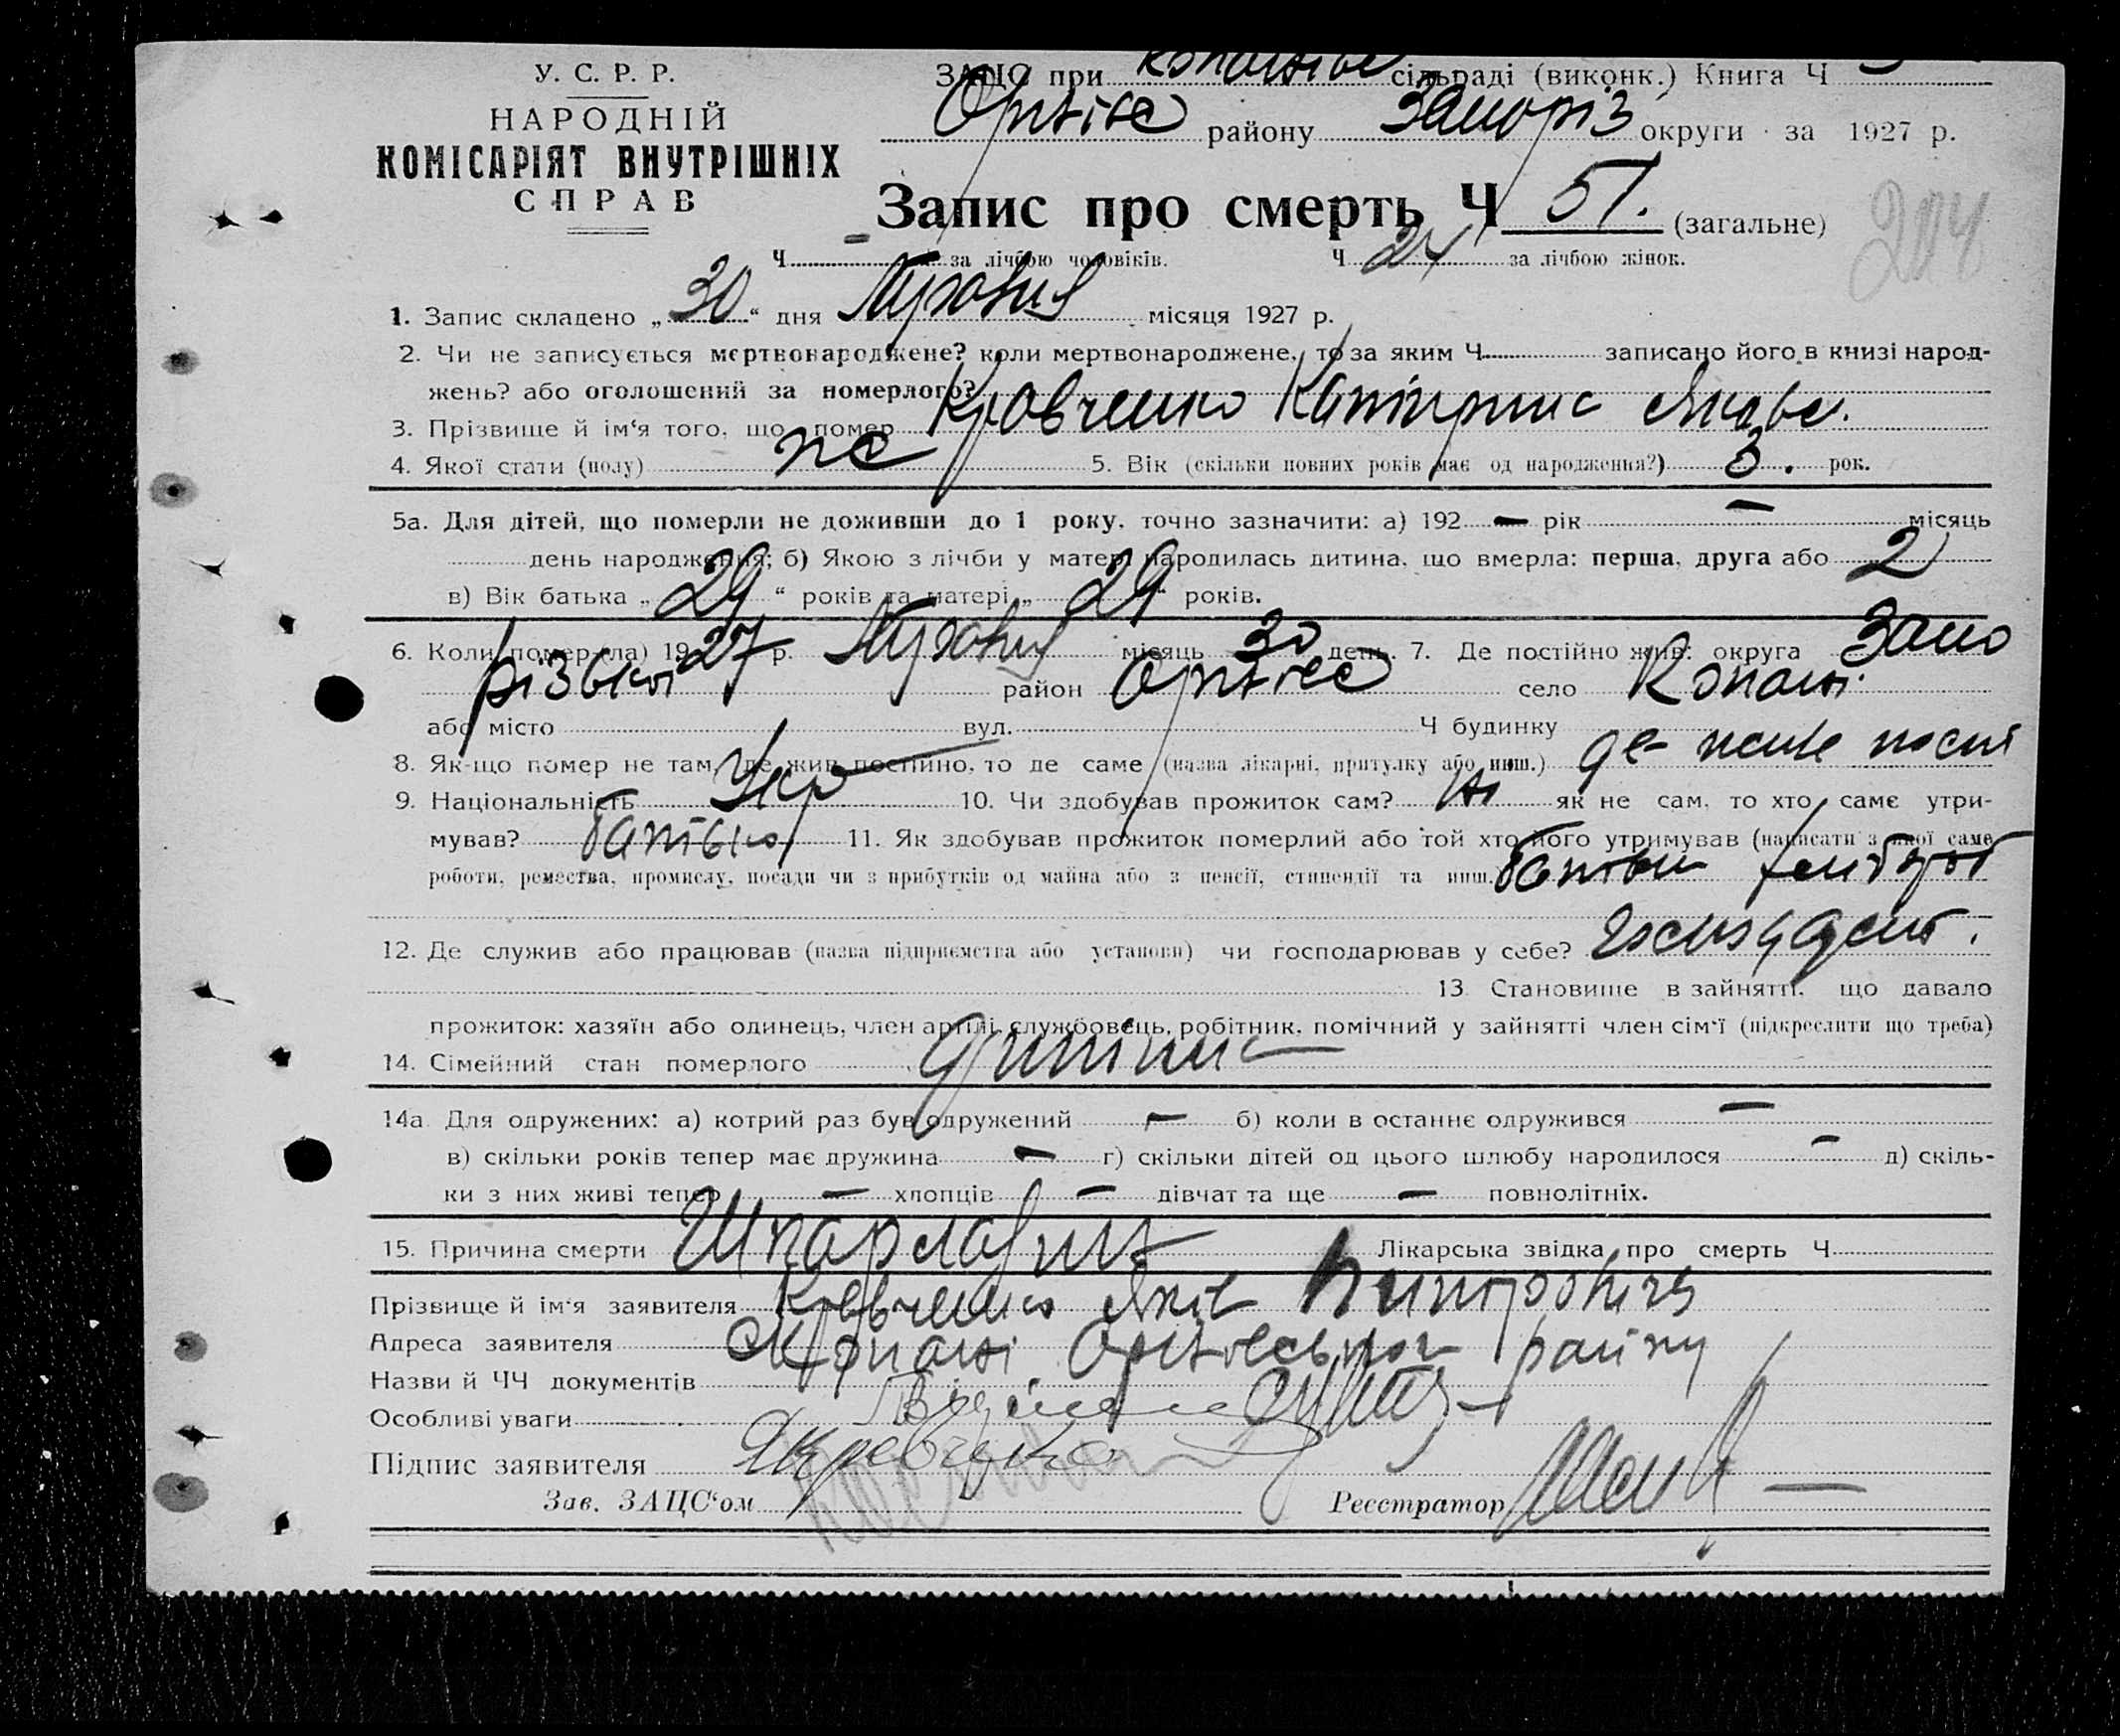 У. С. Р. Р.
НАРОДНІЙ
КОМІСАРІЯТ ВНУТРІШНІХ
СПРАВ
ЗАЦС при сільраді (виконк.) Книга Ч
району Запоріз округи за 1927 р.
Запис про смерть Ч 51. (загальне)
Ч за лічбою чоловіків. Ч за лічбою жінок.
1. Запис складено „ 30 “ дня Травня місяця 1927 р.
2. Чи не записується мертвонароджене? коли мертвонароджене, то за яким Ч записано його в книзі народ-
жень? або оголошений за померлого?
3. Прізвище й ім'я того, що помер Кравченко Катирина Яковл.
4. Якої стати (полу) 5. Вік (скільки повних років має од народження?) 3. рок.
5а. Для дітей, що померли не доживши до 1 року, точно зазначити: а) 192 — рік — місяць
день народження; б) Якою з лічби у матері народилась дитина, що вмерла: перша, друга або 2
в) Вік батька „ 29 “ років та матері „ 29 “ років.
6. Коли помер (ла) 1927 р. Травня місяць 30 день. 7. Де постійно жив: округа Запо
різької район село Копані
або місто вул. Ч будинку
8. Як-що помер не там, де жив постійно, то де саме (назва лікарні, притулку або инш.) де
9. Національність Укр 10. Чи здобував прожиток сам? ні як не сам, то хто саме утри-
мував? батько 11. Як здобував прожиток померлий або той хто його утримував (написати з якої саме
роботи, ремества, промислу, посади чи з прибутків од майна або з пенсії, стипендії та инш. батько хлібороб
12. Де служив або працював (назва підприємства або установи) чи господарював у себе?
13 Становище в зайнятті, що давало
прожиток: хазяїн або одинець, член артілі, службовець, робітник, помічний у зайнятті член сім'ї (підкреслити що треба)
14. Сімейний стан померлого дитина
14а Для одружених: а) котрий раз був одружений — б) коли в останнє одружився —
в) скільки років тепер має дружина — г) скільки дітей од цього шлюбу народилося — д) скіль-
ки з них живі тепер — хлопців — дівчат та ще — повнолітніх.
15. Причина смерти Шкарлатина Лікарська звідка про смерть Ч
Прізвище й ім'я заявителя Кравченко Яків
Адреса заявителя Копані району
Назви й ЧЧ документів
Особливі уваги
Підпис заявителя Якравченко
Зав. ЗАЦС‘ом Реєстратор